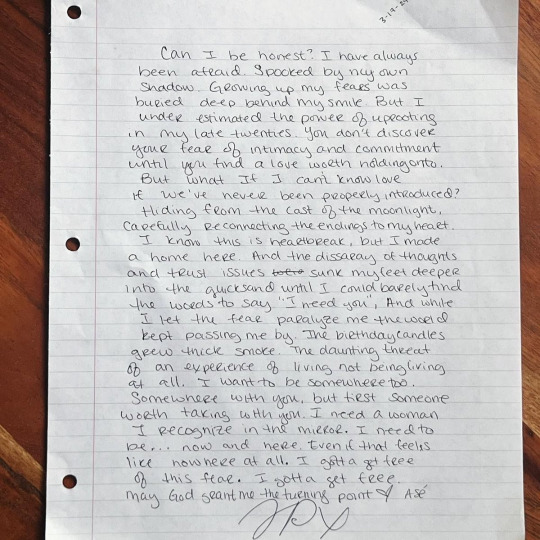 3-19-24
Can I be honest? I have always
been afraid. Spooked by my own
shadow. Growing up my fears was
buried deep behind my smile. But I
under estimated the power of uprooting
in my late twenties. You don't discover
your fear of intimacy and commitment
until you find a love worth holding onto.
But what If I can't know love
if we've never been properly introduced?
Hiding from the cast of the moonlight,
Carefully Reconnecting the endings to my heart.
I know this is heartbreak, but I made
a home here. And the dissaray of thoughts
and trust issues sunk my feet deeper
into the quicksand until I could barely find
the words to say "I need you", And while
I let the fear paralyze me the world
kept passing me by. The birthday candles
grew thick smoke. The daunting threat
of an experience of living not being living
at all. I want to be somewhere too.
Somewhere with you, but first someone
worth taking with you. I need a woman
I recognize in the mirror. I need to
be... now and here. Even if that feels
like nowhere at all. I gotta get free
of this fear. I gotta get free.
may God grant me the turning point Asé